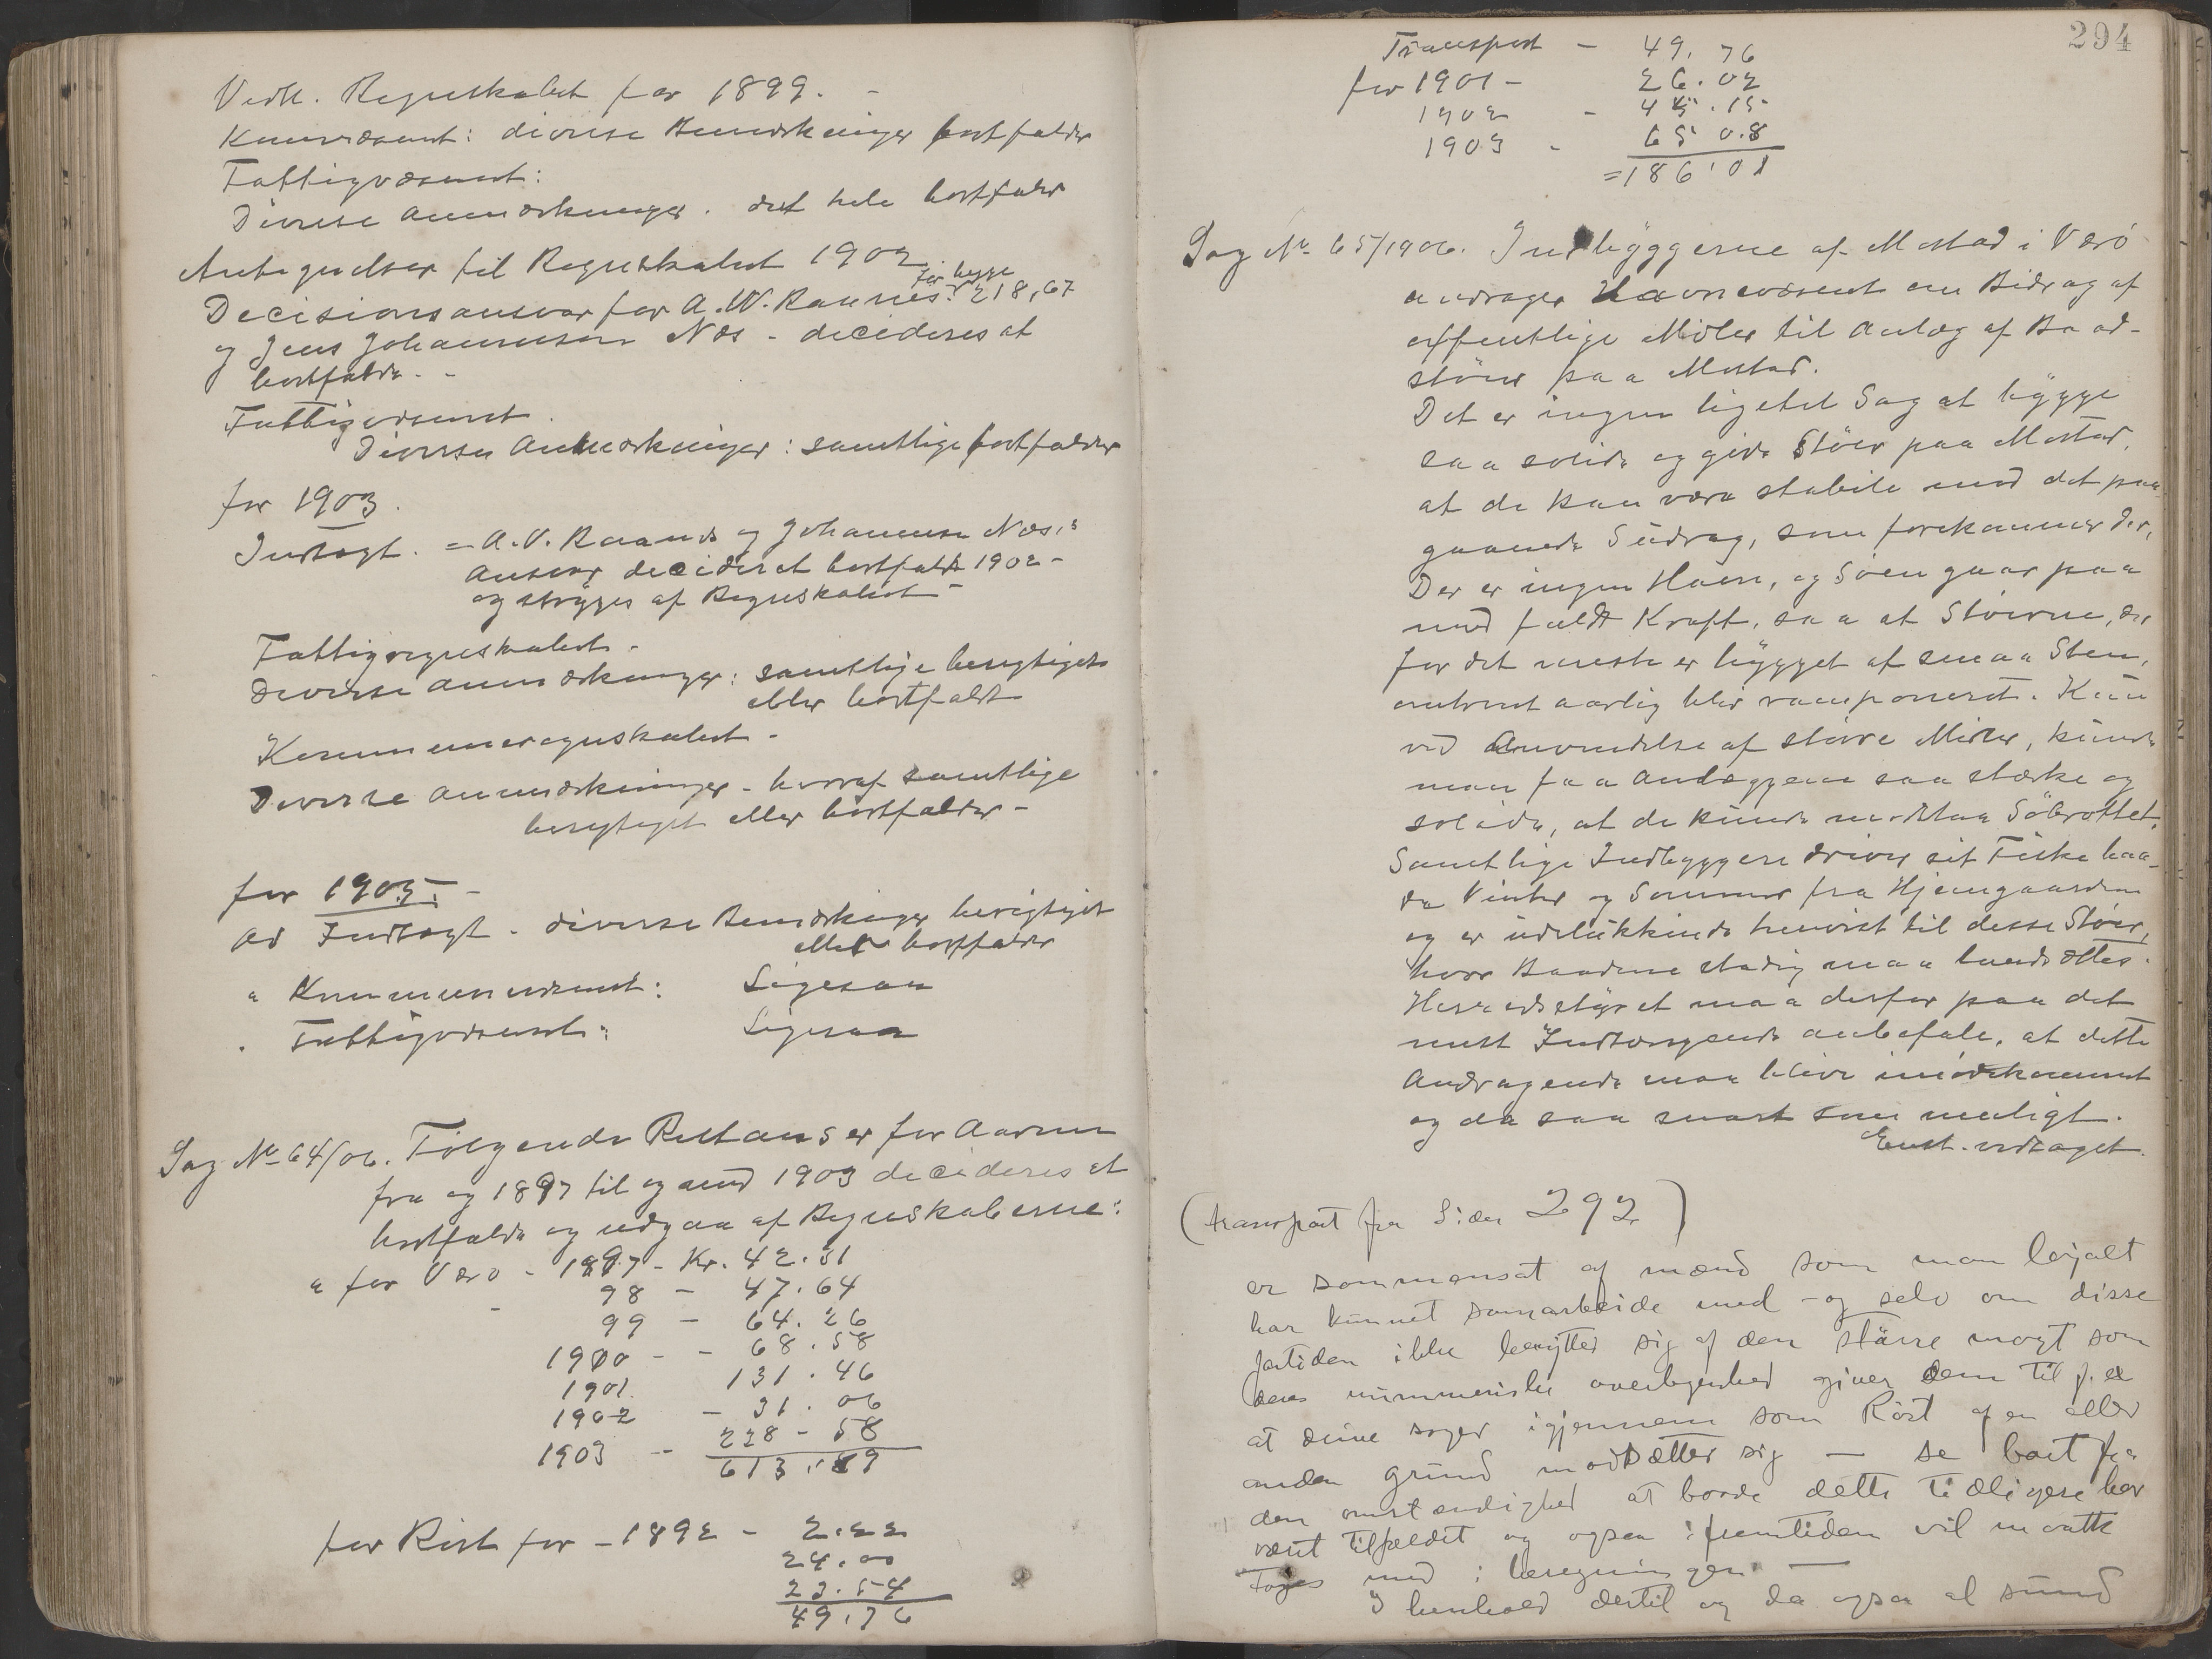 Vedk. Regnskabet for 1899. -
Kunvæsenet: diverse Bemærkninger bortfalder
Fattigvæsenet:
Diverse Anmærkninger. det hele bortfaldr
Antegnelser til Regnskabet 1902.
for begge
Decisionsansvar for A. W. Raanes. 218,67
og Jens Johannesen Næs - decideres at
bortfalde. -
Fattigvæsenet.
Diverse Anmærkninger: samtlige bortfalder
for 1903.
Indtægt. = A. V. Raanes og Johannesen Næs's
Ansvar decideret bortfaldt 1902 -
og stryges af Regnskabet -
Fattigregnskabet.
Diverse Anmærkninger: samtlige berigtiget
eller bortfaldt
Kommuneregnskabet -
Diverse Anmærkninger - hvoraf samtlige
berigtiget eller bortfalder -
for 1905 -
Ad Indtægt. diverse Bemærkninger berigtiget
eller bortfalder
" Kommunevæsenet: Ligesaa
. Fattigvæsenet: Ligesaa
Sag No 64/06. Følgende Restanser for Aarene
fra og 1897 til og med 1903 decideres at
bortfalde og udgaa af Regnskaberne:
a for Værø - 1897 - Kr. 42.31
98 - 47.64
99 - 64.26
1900 - - 68.58
1901. 131.46
1902 - 31.06
1903 - 228 - 58
613.89
for Røst for - 1892 - 2.22
24.00
23.54
49.76
294
Transport - 49.76
for 1901 - 26.02
1902 - 45.15
1903 - 65 0.8
= 186'01
Sag No 65/1906. Indbyggerne af Mostad i Værö
andrager Havnevæsenet om Bidrag af
offentlige Midler til Anlæg af Baad-
stöer paa Mostad.
Det er ingen ligetil Sag at bygge
saa solide og gode Stöer paa Mostad,
at de kan være stabile med det paa-
gaaende Södrag, som forekommer der,
Der er ingen Havn, og Söen gaar paa
med fuldt Kraft, saa at Stöerne, der
for det meste er bygget af smaa Sten,
omtrent aarlig blir ramponeret. Kun
ved Anvendelse af större Midler, kunde
man faa Anlæggene saa stærke og
solide, at de kunde modstaa Söbrottet.
Samtlige Indbyggere driver sit Fiske baa-
de Vinter og Sommer fra Hjemgaarden
og er udelukkende henvist til desse Stöer,
hvor Baadene stadig maa landsættes.
Herredstyret maa derfor paa det
mest Indtrængende anbefale, at dette
Andragende maa blive imödekommet
og da saa snart som muligt.
Enst. vedtaget.
(transport fra Siden 292)
er sammensat af mænd som man loyalt
har kunnet samarbeide med - og selv om disse
fortiden ikke benytter sig af den större magt som
deres nummeriske overlegenhed giver dem til f. ex
at drive sager igjennem som Röst af en eller
anden grund modsætter sig - se bort fra
den omstændighed at baade dette tidligere har
været tilfældet og ogsaa i fremtiden vil maatte
tages med i beregningen. -
I henhold dertil og da ogsaa al sund